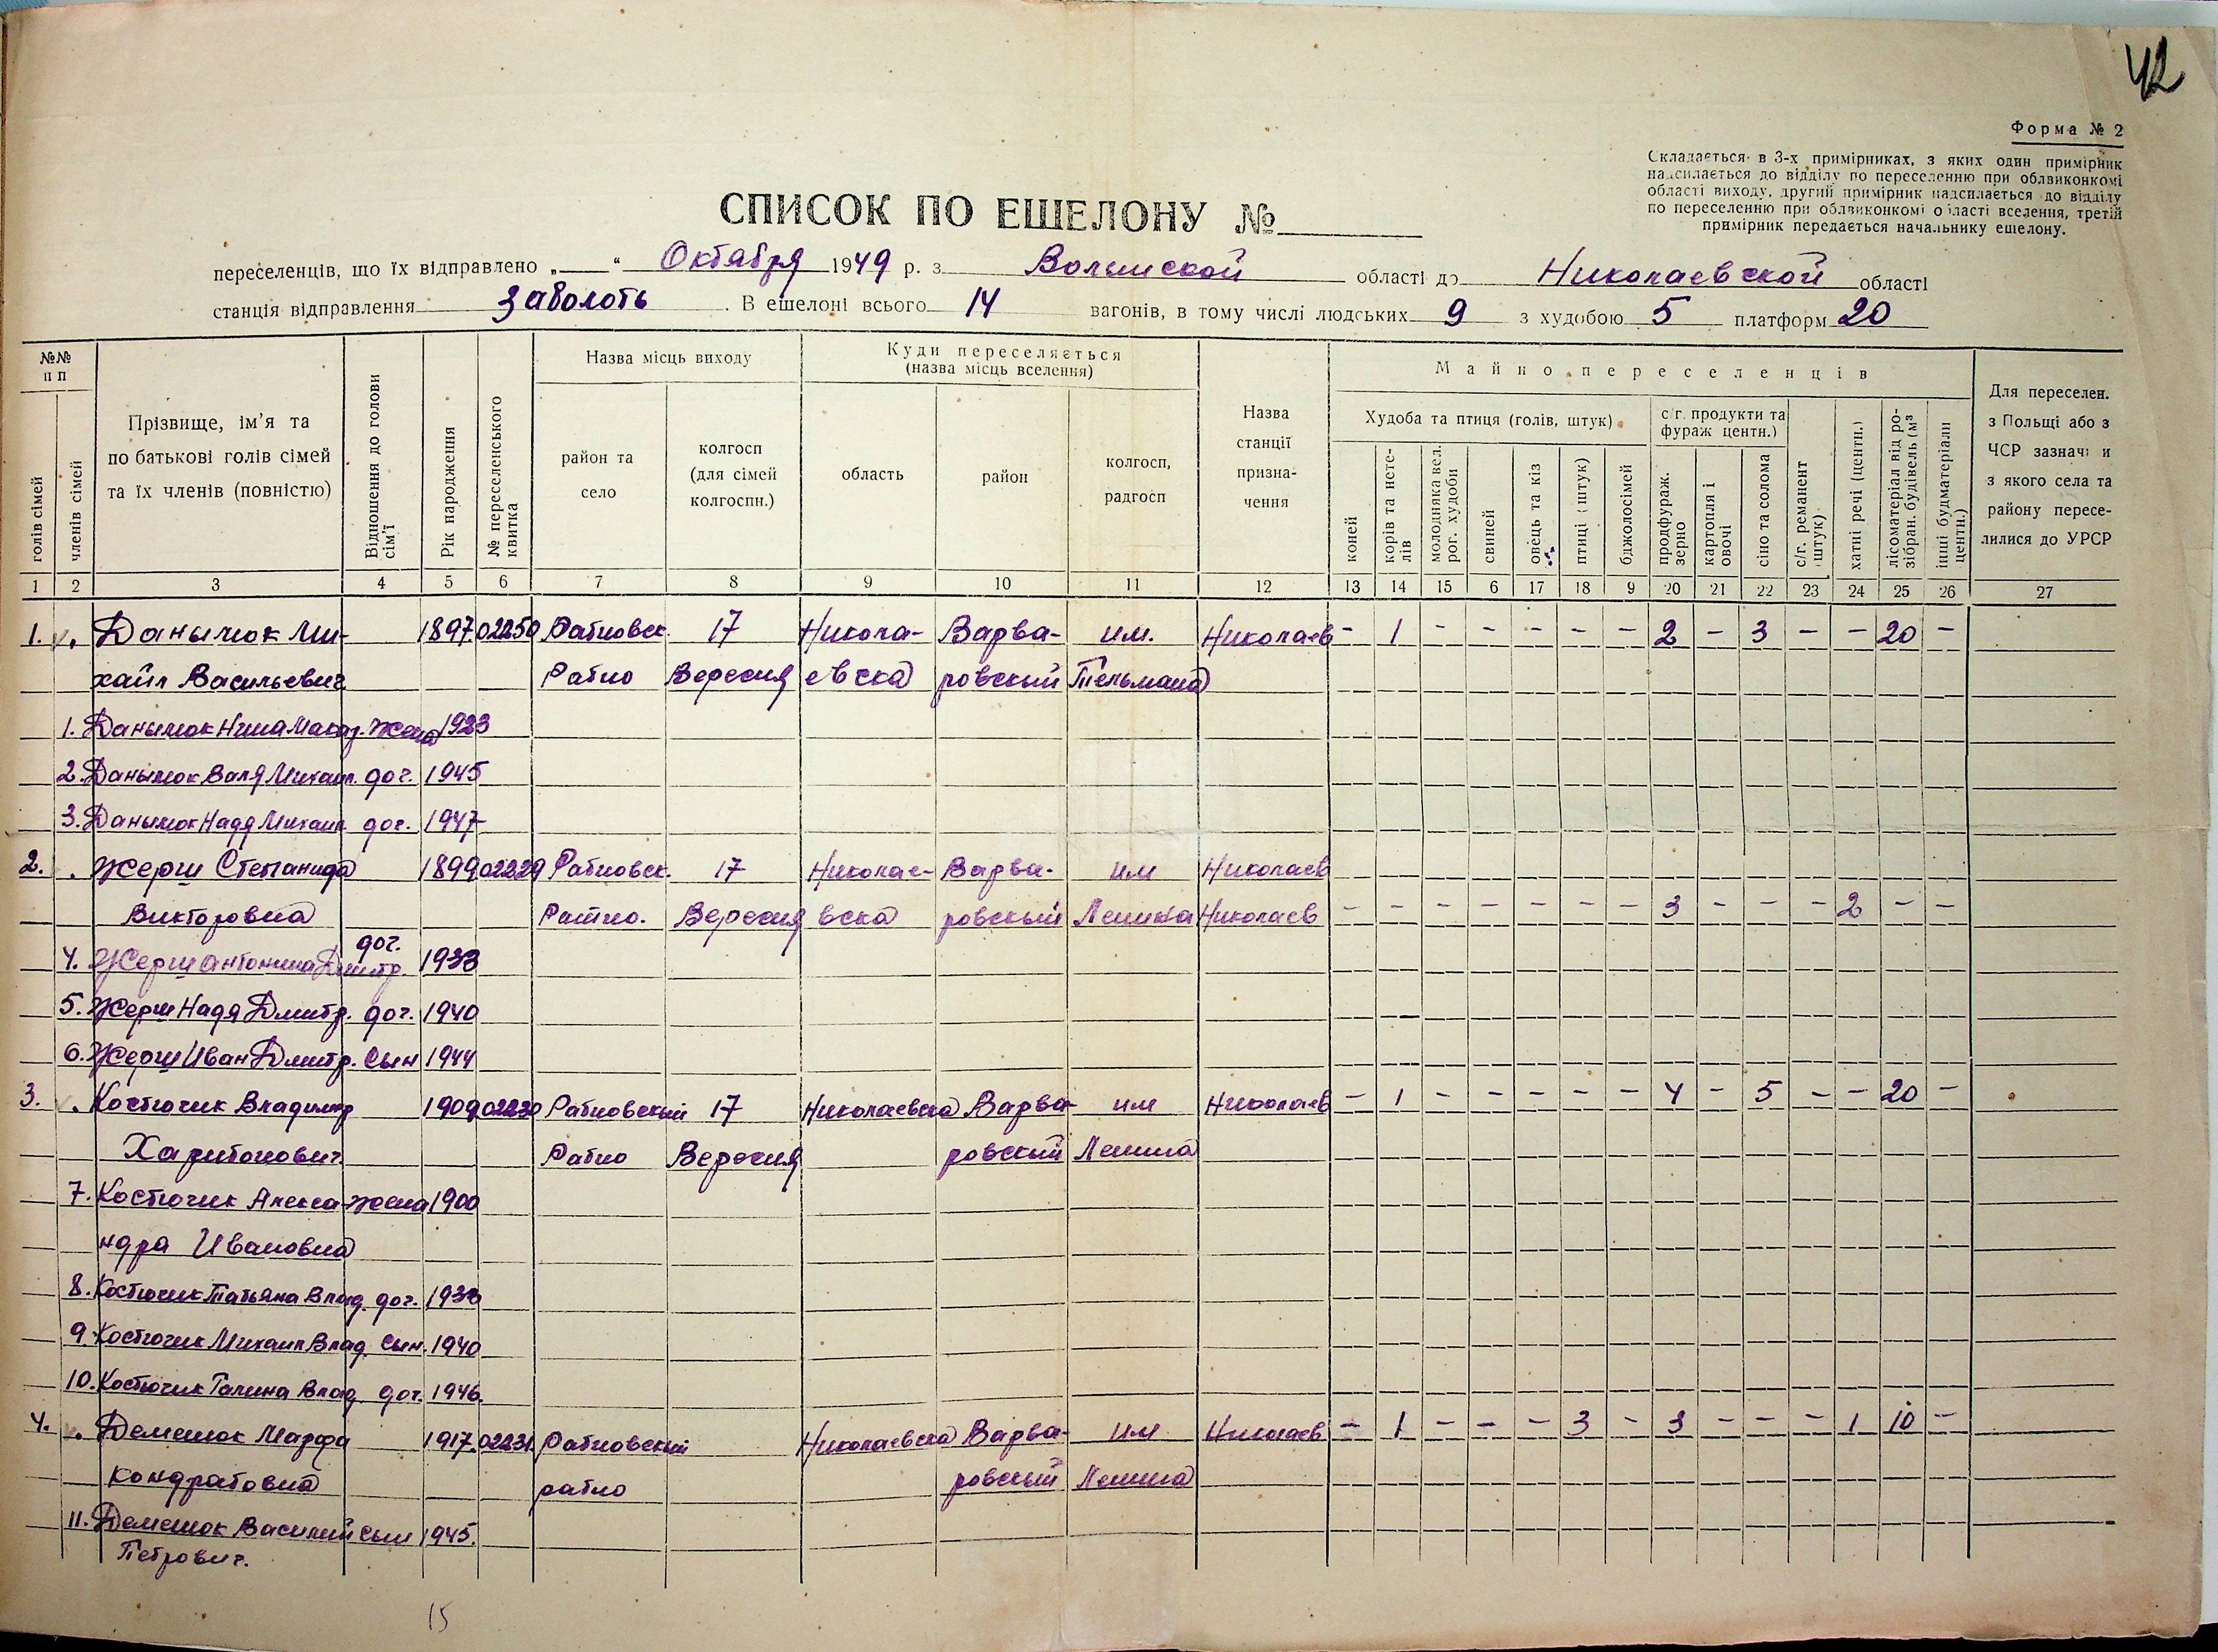 42
Форма № 2
Складається в 3-х примірниках, з яких один примірник
надсилається до відділу по переселенню при облвиконкомі
області виходу, другий примірник надсилається до відділу
по переселенню при облвиконкомі області вселення, третій
примірник передається начальнику ешелону.
СПИСОК ПО ЕШЕЛОНУ №
переселенців, що їх відправлено „ “ Октября 1949 р. з Волынской області до Николаевской області
станція відправлення Заболоть . В ешелоні всього 14 вагонів, в тому числі людських 9 з худобою 5 платформ 20
№№ п п
голів сімей
членів сімей
Прізвище, ім’я та по батькові голів сімей та їх членів (повністю)
Відношення до голови сім’ї
Рік народження
№ переселенського квитка
Назва місць виходу
район та село
колгосп (для сімей колгоспн.)
Куди переселяється (назва місць вселення)
область
район
колгосп, радгосп
Назва станції призна-чення
Майно переселенців
Худоба та птиця (голів, штук)
коней
корів та нете-лів
молодняка вел. рог. худоби
свиней
овець та кіз
птиці (штук)
бджолосімей
с/г. продукти та фураж центн.)
продфураж. зерно
картопля і овочі
сіно та солома
с/г. реманент (штук)
хатні речі (центн.)
лісоматеріал від ро-зібран. будівель (м³
інші будматеріали центн.)
Для переселен. з Польщі або з ЧСР зазначи и з якого села та району пересе-лилися до УРСР
1 2 3 4 5 6 7 8 9 10 11 12 13 14 15 6 17 18 9 20 21 22 23 24 25 26 27
1. Данылюк Ми- 1897 02250 Ратновск. 17 Никола- Варва- им. Николаев - 1 - - - - - 2 - 3 - - 20 -
хаил Васильевич Ратно Вересня евска ровский Тельмана
1. Данылюк Нина Макар. жена 1923
2. Данылюк Валя Михаил. доч. 1945
3. Данылюк Надя Михаил. доч. 1947
2. Жерш Степанида 1899 02229 Ратновск. 17 Николае- Варва- им Николаев
Викторовна Ратно. Вересня вска ровский Ленина Николаев - - - - - - - 3 - - - 2 - -
4. Жерш Антонина Дмитр. доч. 1933
5. Жерш Надя Дмитр. доч. 1940
6. Жерш Иван Дмитр. сын 1944
3. Костючик Владимир 1909 02230 Ратновский 17 Николаевска Варва- им Николаев - 1 - - - - - 4 - 5 - - 20 -
Харитонович Ратно Вересня ровский Ленина
7. Костючик Алекса- жена 1900
ндра Ивановна
8. Костючик Татьяна Влад. доч. 1938
9. Костючик Михаил Влад. сын. 1940
10. Костючик Галина Влад. доч. 1946.
4. Демешок Марфа 1917. 02231. Ратновский Николаевска Варва- им Николаев - 1 - - - 3 - 3 - - - 1 10 -
Кондратовна ратно ровский Ленина
11. Демешок Василий сын 1945.
Петрович.
15